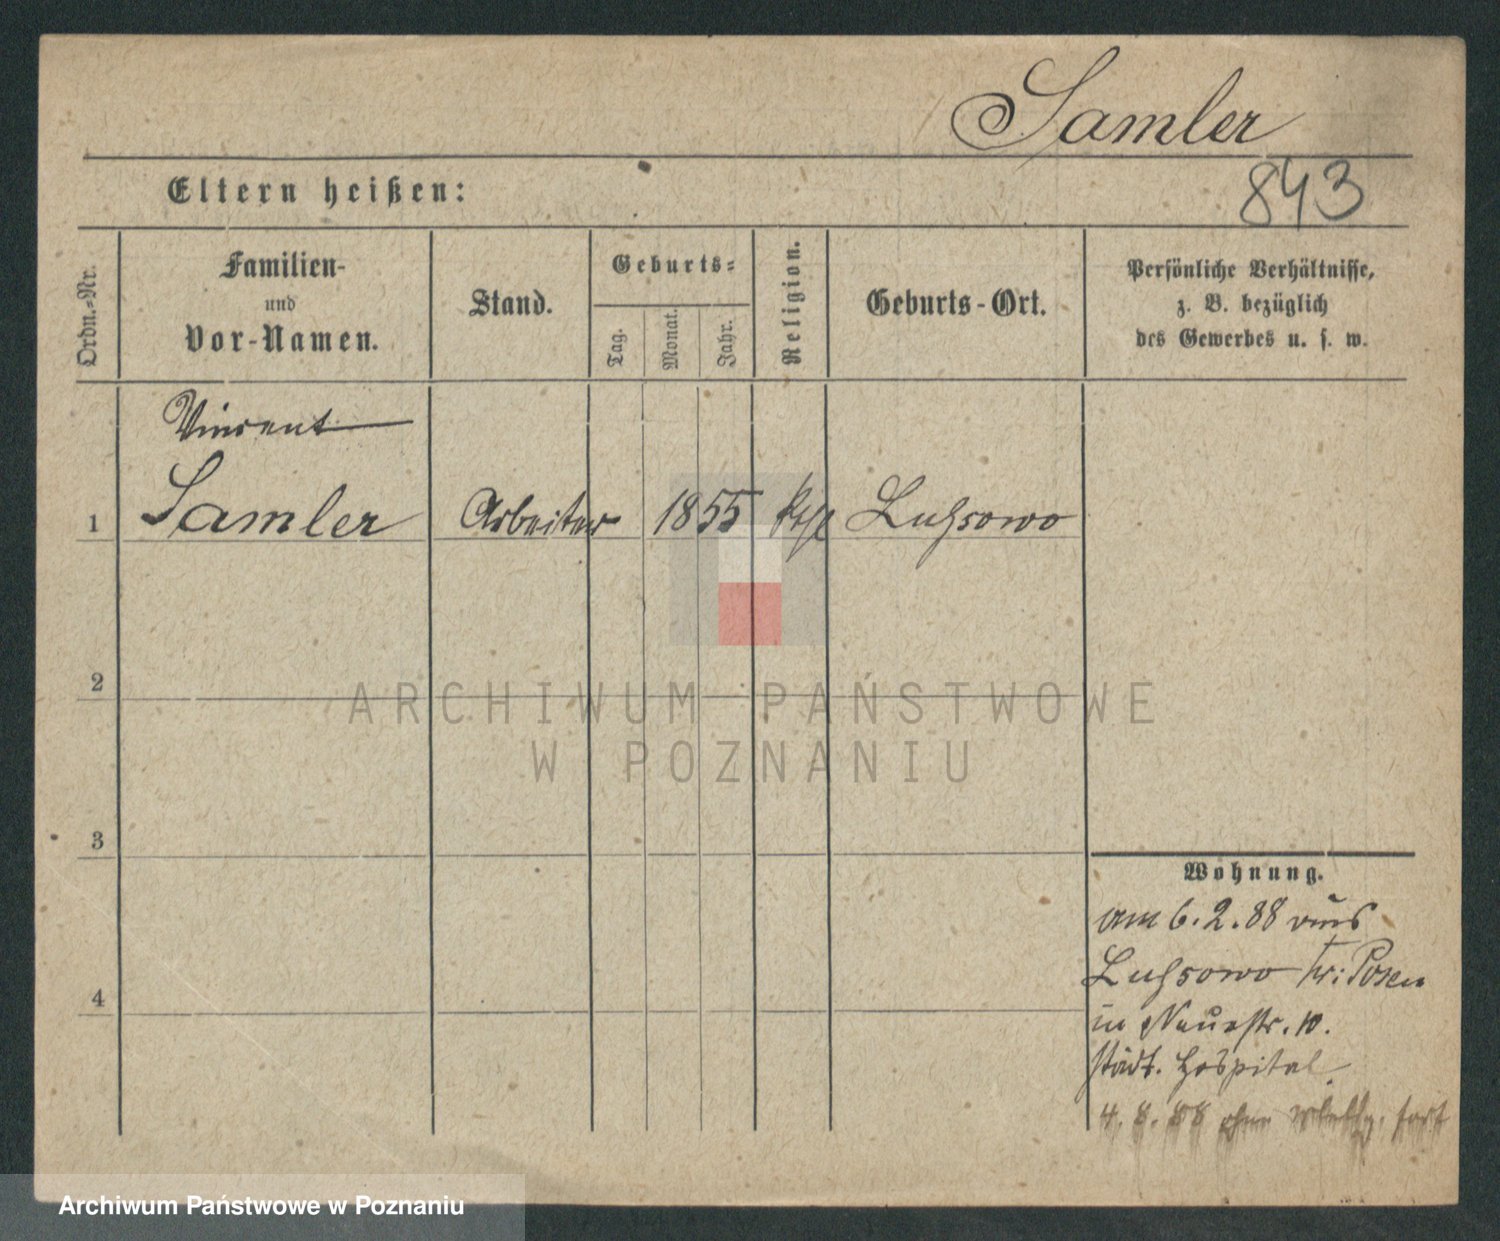 Samler
843
Eltern heißen:
Ordn.-Nr.
Familien-
und
Vor-Namen.
Stand.
Geburts-
Tag.
Monat.
Jahr.
Religion.
Geburts-Ort.
Persönliche Verhältnisse,
z. B. bezüglich
des Gewerbes u. s. w.
Vincent
1 Samler Arbeiter 1855 kth Lussowo
2
3
4
Wohnung.
am 6.2.88 aus
Lussowo Kr: Posen
in Neuestr. 10.
städt. Hospital
4.8.88 ohne fort
ARCHIWUM PAŃSTWOWE
W POZNANIU
Archiwum Państwowe w Poznaniu